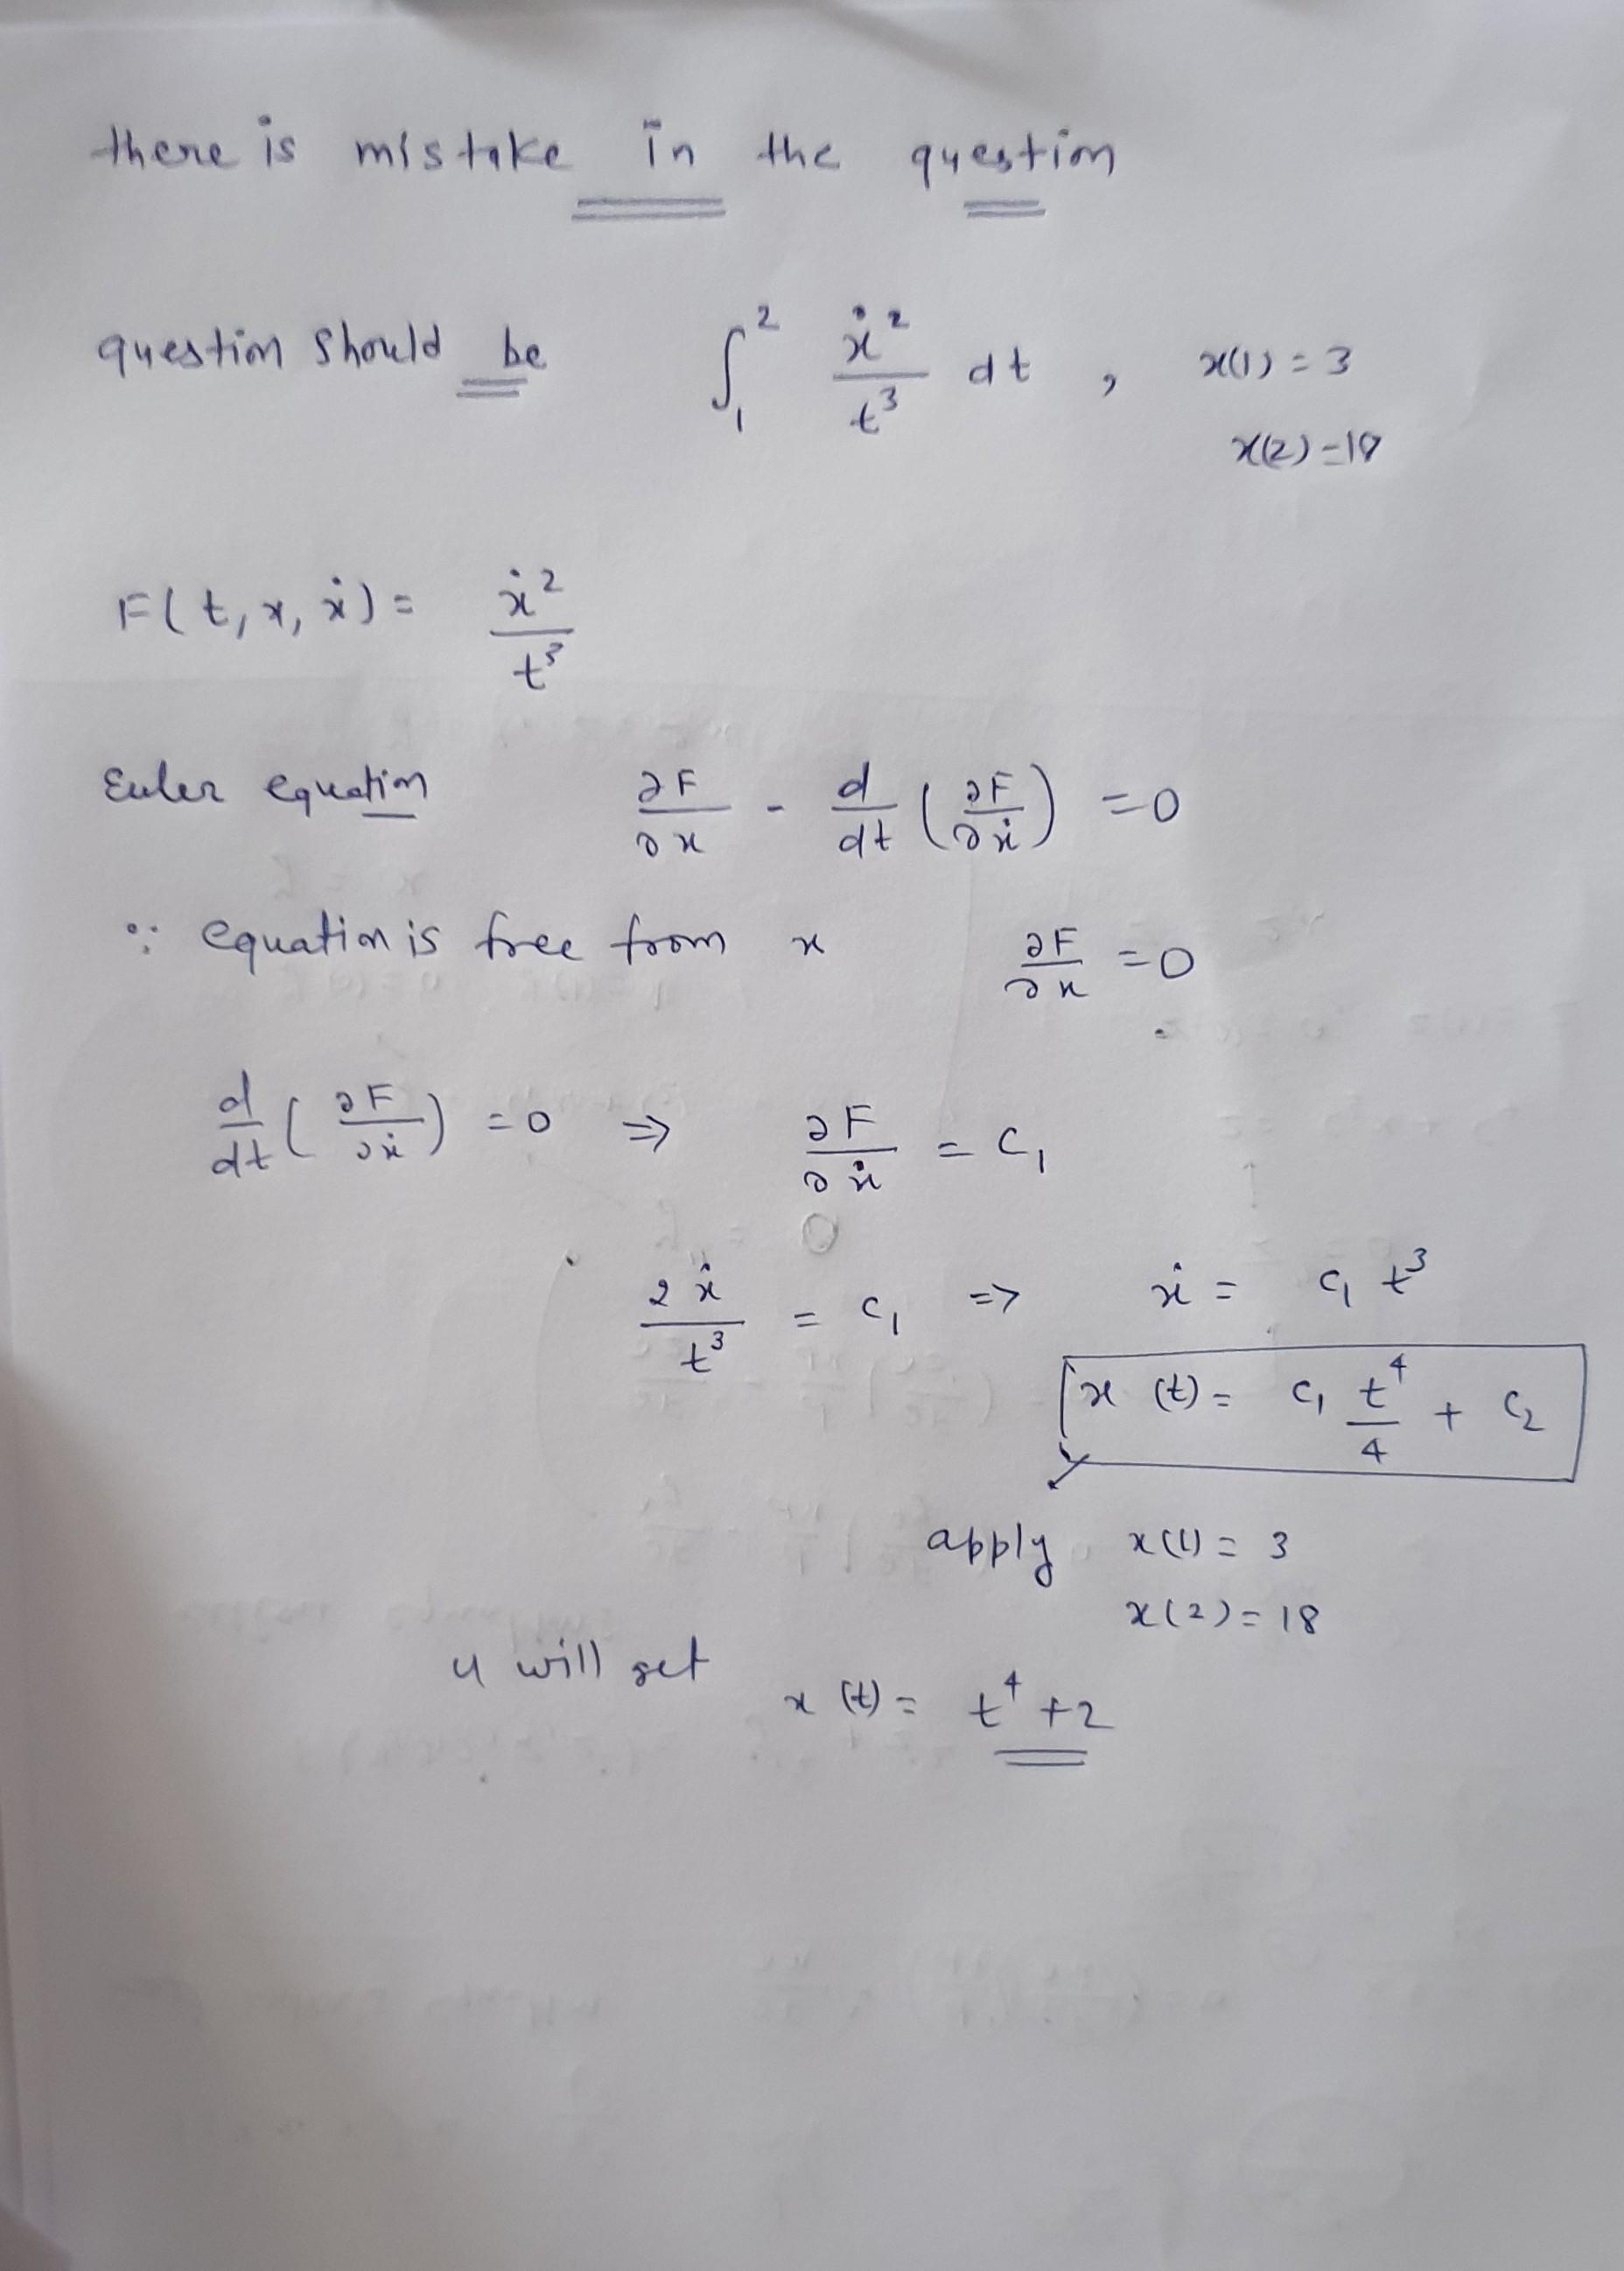 there is mistake in the question
question should be ∫₁² ẋ²/t³ dt , x(1) = 3
x(2) = 18
F(t, x, ẋ) = ẋ²/t³
Euler equation ∂F/∂x - d/dt (∂F/∂ẋ) = 0
∵ equation is free from x ∂F/∂x = 0
d/dt (∂F/∂ẋ) = 0 ⇒ ∂F/∂ẋ = C₁
2ẋ/t³ = C₁ => ẋ = C₁ t³
x (t) = C₁ t⁴/4 + C₂
apply x(1) = 3
x(2) = 18
u will get x (t) = t⁴ + 2